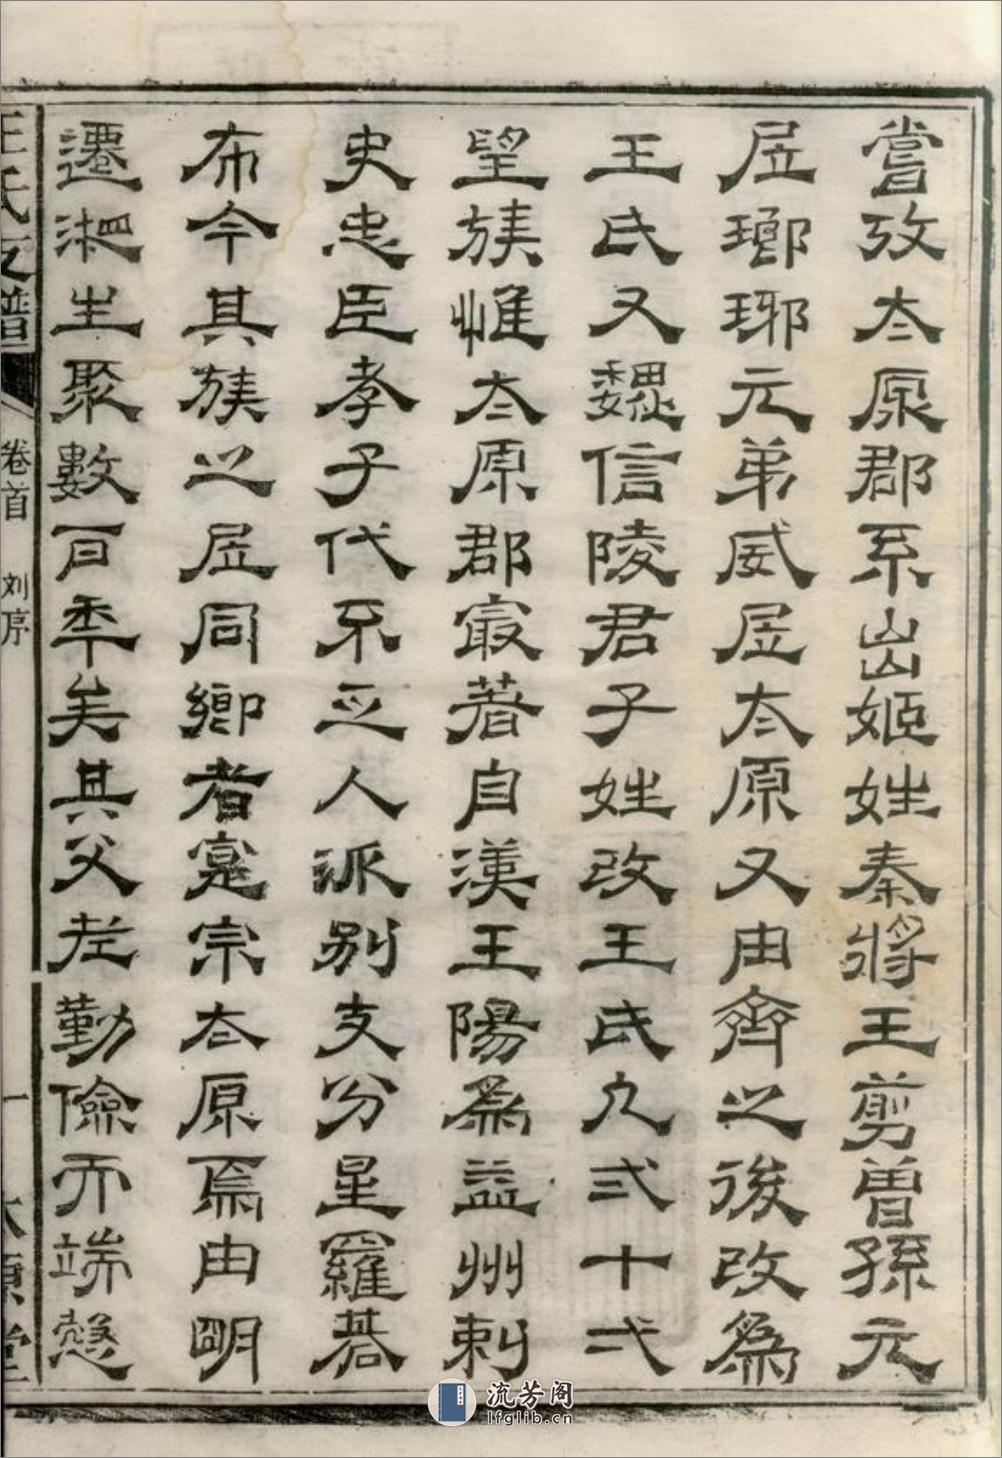 嘗攷太原郡系出姬姓秦將王剪曾孫元
居瑯琊元弟威居太原又由齊之後改為
王氏又魏信陵君子姓改王氏凡弍十弍
望族惟太原郡㝡著自漢王陽為益州刺
史忠臣孝子代不乏人派別支分星羅碁
布今其族之居同鄉者寔宗太原焉由明
遷淝生聚數百年美其父老勤儉而端慤
王氏支譜 卷首 刘序 一 太原堂
流芳阁
lfglib.cn